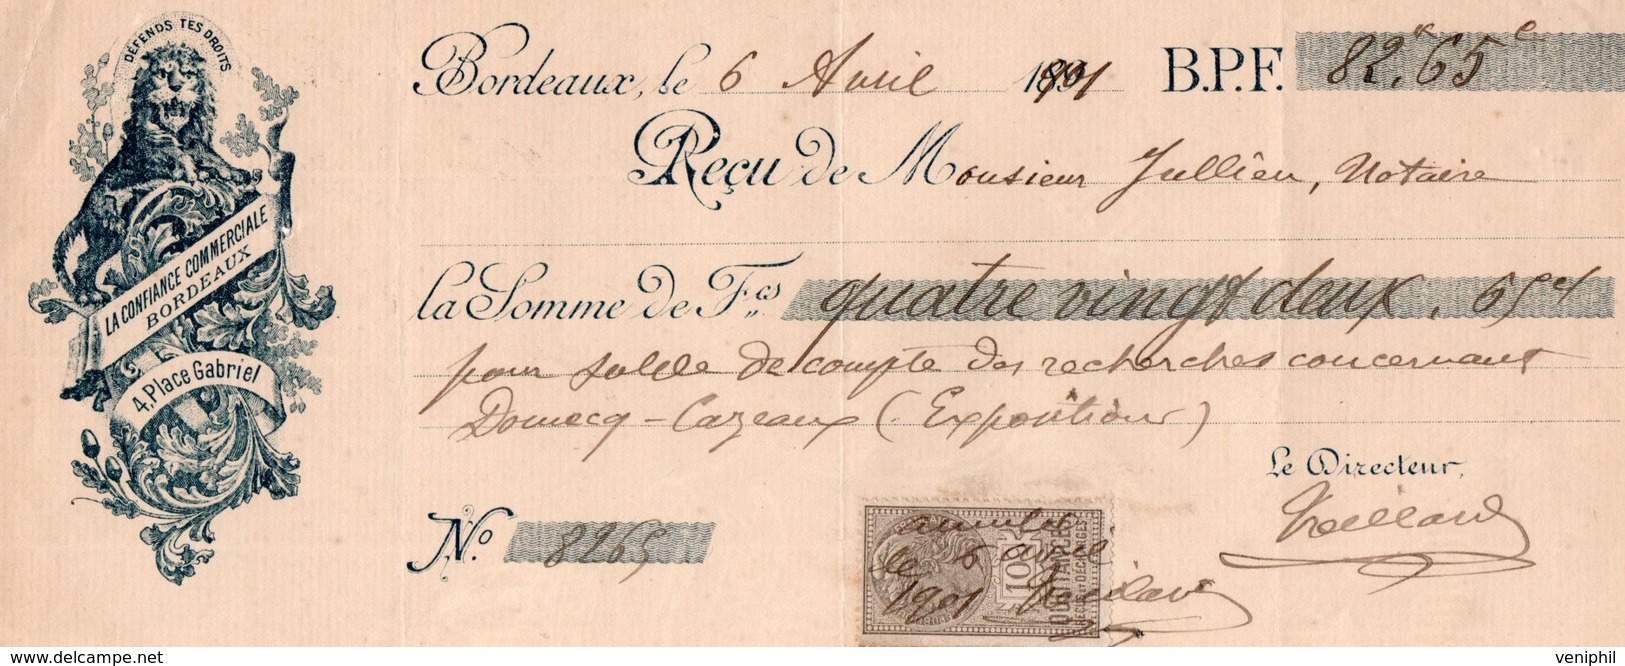 DÉFENDS TES DROITS
LA CONFIANCE COMMERCIALE
BORDEAUX
4, Place Gabriel
Bordeaux, le 6 Avril 1901 B.P.F. 82f65c
Reçu de Monsieur Jullien, Notaire
la Somme de Fcs quatre vingt deux, 65 ct
pour solde de compte des recherches concernant
Domecq-Cazeaux (Exposition)
Le Directeur,
No. 8265
annulé
le 6 avril
1901
10c
QUITTANCES
REÇUS ET DÉCHARGES
veniphil